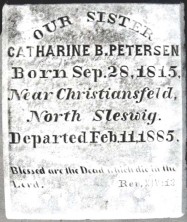 OUR SISTER
CATHARINE B. PETERSEN
Born Sep. 28, 1815,
Near Christiansfeld,
North Sleswig.
Departed Feb. 11, 1885.
Blessed are the Dead which die in the
Lord. Rev.